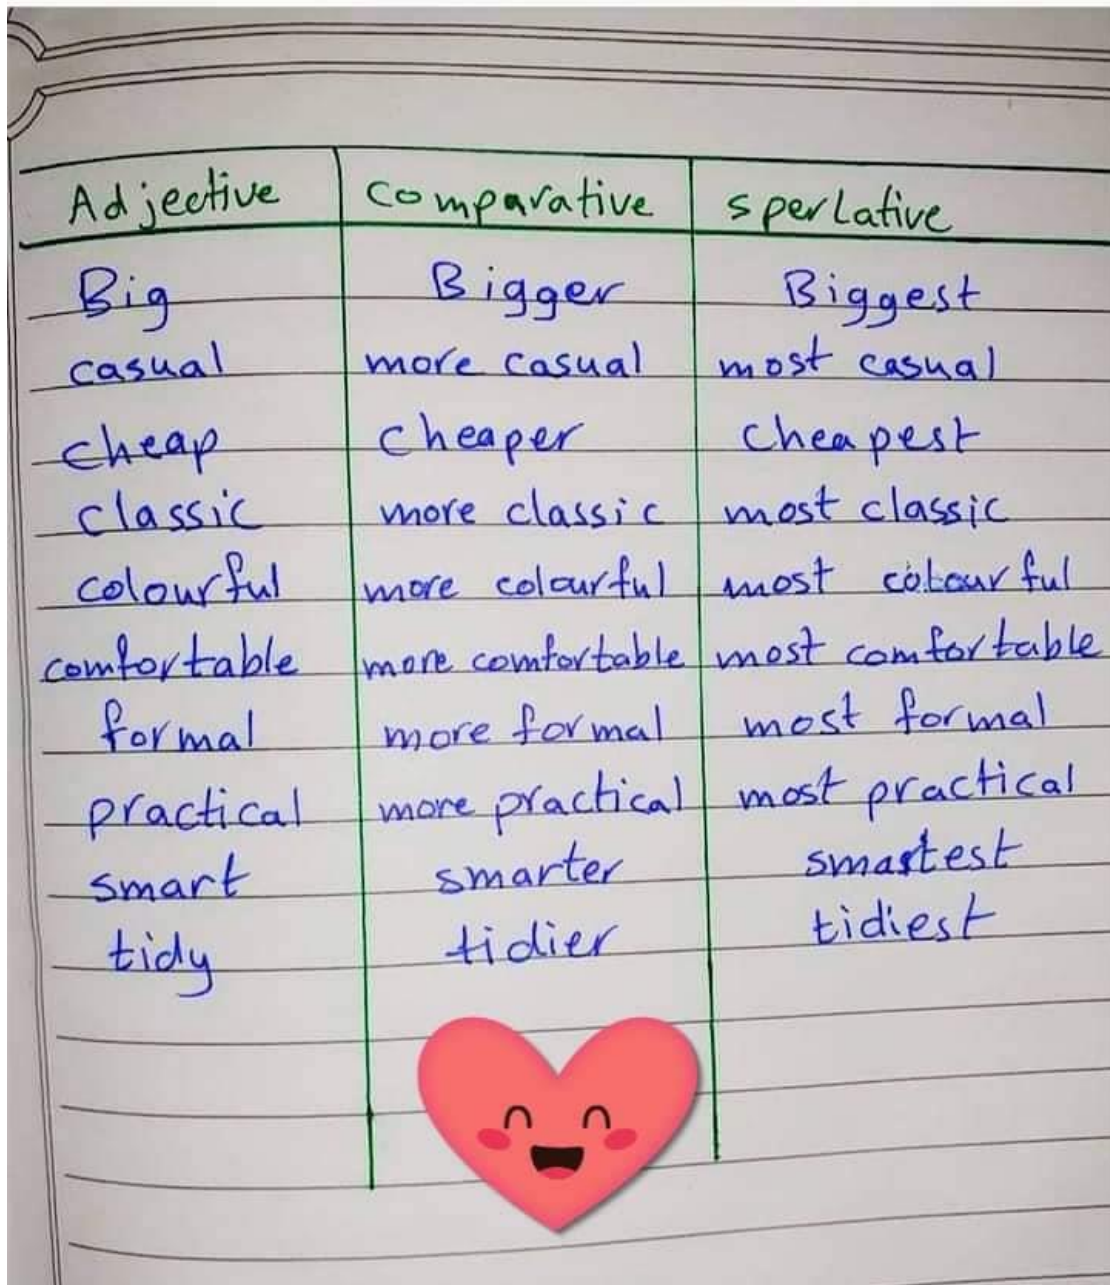 Adjective comparative sperlative
Big Bigger Biggest
casual more casual most casual
cheap cheaper cheapest
classic more classic most classic
colourful more colourful most colourful
comfortable more comfortable most comfortable
formal more formal most formal
practical more practical most practical
smart smarter smartest
tidy tidier tidiest